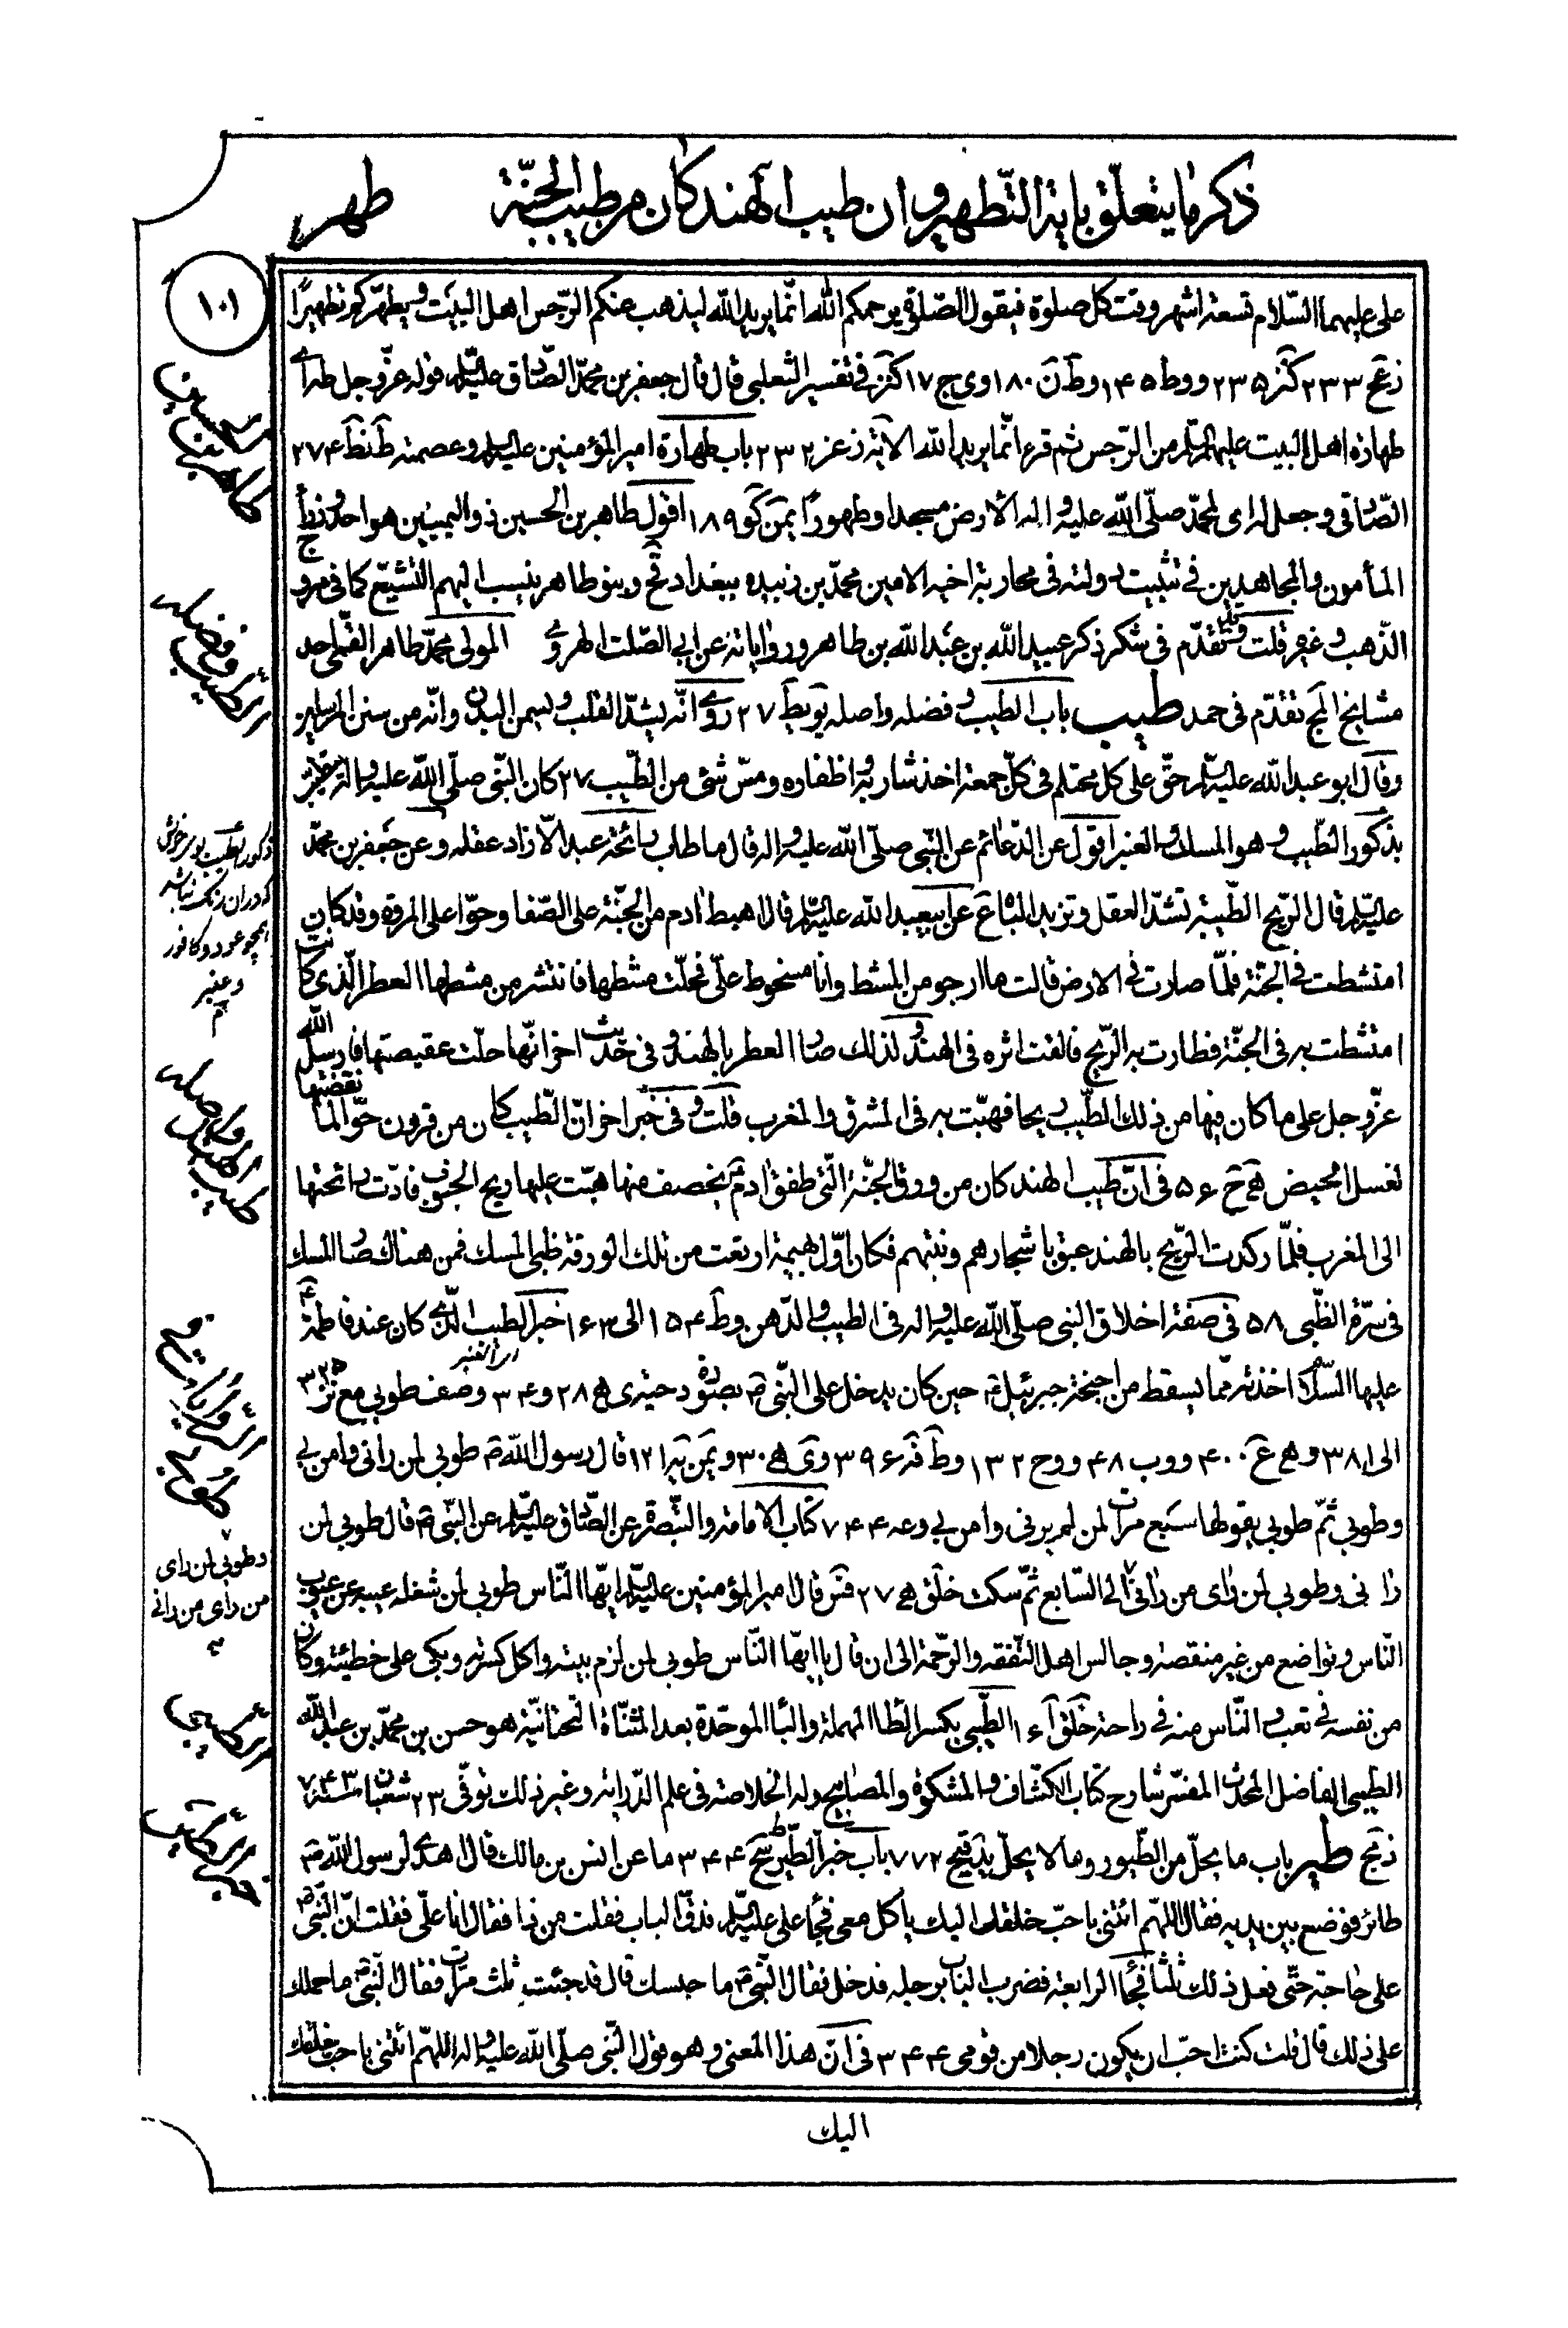 ذكر ما يتعلّق باية التّطهير وان طيب الهند كان من طيب الجنّة
طهر
١٠١
على عليهما السّلام تسعة اشهر وقت كل صلوة فيقول الصّلوة يرحمكم الله انّما يريد الله ليذهب عنكم الرّجس اهل البيت ويطهّركم تطهيرًا
٢٣٣ كنز ٢٣٥ ووط ١٤٥ وط ١٨٠ وى ج ١٧ كنز فى تفسير الثعلبى قال قال جعفر بن محمّد الصّادق عليه السّلم قوله عزّ وجل طه اى
طهارة اهل البيت عليهم السّلم من الرّجس ثم قرء انّما يريد الله الاية ز عز ٢٣٢ باب طهارة امير المؤمنين عليه السلم وعصمته ط نط ٢٧٤
الصّادقى وجعل له اى لمحمّد صلّى الله عليه واله الارض مسجدا وطهورًا يمن كو ١٨٩ اقول طاهر بن الحسين ذو اليمينين هو احد وزراء
المأمون والمجاهدين فى تثبيت دولته فى محاربة اخيه الامين محمّد بن زبيده ببغداد وبنو طاهر ينسب اليهم التشيّع كما فى مروج
الذّهب وغيره قلت وتقدّم فى شكر ذكر عبيد الله بن عبد الله بن طاهر ورواياته عن ابى الصّلت الهروى المولى محمّد طاهر القمّى احد
مشايخ المج تقدّم فى حمد طيب باب الطيب وفضله واصله يو يط ٢٧ روى انّه يشدّ القلب ويسمن البدن وانّه من سنن المرسلين
وقال ابو عبد الله عليه السّلم حقّ على كل محتلم فى كلّ جمعة اخذ شاربه واظفاره ومسّ شئ من الطّيب ٢٧ كان النّبى صلّى الله عليه واله
بذكور الطّيب وهو المسك والعنبر اقول عن الدّعائم عن النّبى صلّى الله عليه واله قال ما طاب رائحة عبد الّا زاد عقله وعن جعفر بن محمّد
عليه السّلم قال الرّيح الطّيبة تشدّ العقل وتزيد الباه ع عن ابيعبد الله عليه السّلم قال اهبط ادم من الجنّة على الصّفا وحوّا على المروة وقد كانت
امتشطت فى الجنّة فلمّا صارت فى الارض قالت ما ارجو من المشط وانا مسخوط علىّ فحلّت مشطها فانتشر من مشطها العطر الّذى كانت
امتشطت به فى الجنّة فطارت به الرّيح فالقت اثره فى الهند ولذلك صار العطر بالهند وفى حديث اخر انّها حلّت عقيصتها فارسل الله
عزّ وجل على ما كان فيها من ذلك الطّيب ريحا فهبّت به فى المشرق والمغرب قلت وفى خبر اخر انّ الطّيب كان من قرون حوّا لمّا نقضتها
لغسل المحيض هـ ح ٥٦ فى انّ طيب الهند كان من ورق الجنّة الّتى طفق ادم يخصف منها هبّت عليها ريح الجنوب فادّت رائحتها
الى المغرب فلمّا ركدت الرّيح بالهند عبق باشجارهم ونبتهم فكان اوّل بهيمة ارتعت من تلك الورقة ظبى المسك فمن هناك صار المسك
فى سرّة الظّبى ٥٨ فى صفة اخلاق النبى صلّى الله عليه واله فى الطيب والدّهن وط ١٥٤ الى ١٦٣ خبر الطيب الّذى كان عند فاطمة
عليها السّلام اخذته ممّا يسقط من اجنحة جبرئيل حين كان يدخل على النّبى ص بصورة دحية ى هـ ٢٨ و ٣٤ وصف طوبى مع نز ٣٢٥
الى ٣٨١ و هـ ع ٤٠٠ ووب ٤٨ ووح ١٣٢ وط فر ٣٩٦ وى هـ ٣٠ ويمن يد ١٢١ قال رسول الله ص طوبى لمن رانى وامن بى
وطوبى ثمّ طوبى يقولها سبع مرات لمن لم يرنى وامن بى وعه ٧٤٤ كتاب الامامة والتّبصرة عن الصّادق عليه السّلم عن النّبى ص قال طوبى لمن
رانى وطوبى لمن راى من رانى الى السّابع ثمّ سكت خلق هـ ٢٧ فس قال امير المؤمنين عليه السّلم ايّها النّاس طوبى لمن شغله عيبه عن عيوب
النّاس وتواضع من غير منقصة وجالس اهل التّفقه والرّحمة الى ان قال يا ايّها النّاس طوبى لمن لزم بيته واكل كسرته وبكى على خطيئته وكان
من نفسه فى تعب والنّاس منه فى راحة خلق ١٦ الطّيبى بكسر الطّا المهملة والبا الموحّدة بعد المثنّاة التحتانيّة هو حسن بن محمّد بن عبد الله
الطيبى الفاضل المحدّث المفسّر شارح كتاب الكشّاف والمشكوة والمصابيح وله الخلاصة فى علم الدّراية وغير ذلك توفّى ٢٣ شعبان سنة ٧٤٣
طير باب ما يحلّ من الطّيور وما لا يحلّ يد قيح ٧٧٢ باب خبر الطّير ط سح ٣٤٤ ما عن انس بن مالك قال اهدى لرسول الله ص
طائر فوضع بين يديه فقال اللهمّ ائتنى باحبّ خلقك اليك ياكل معى فجاء على عليه السّلم فدقّ الباب فقلت من ذا فقال انا علىّ فقلت انّ النّبى ص
على حاجة حتّى فعل ذلك ثلثا فجاء الرابعة فضرب الباب برجله فدخل فقال النّبى ص ما حبسك قال قد جئت ثلث مرّات فقال النّبى ص ما حملك
على ذلك قال قلت كنت احبّ ان يكون رجلا من قومى ٣٤٤ فى انّ هذا المعنى وهو قول النّبى صلّى الله عليه واله اللهمّ ائتنى باحبّ خلقك
اليك
ذكور الطيب بوى خوش
كه در ان رنك نباشد
همچو عود وكافور
وعنبر
وطوبى لمن راى
من راى من رانى